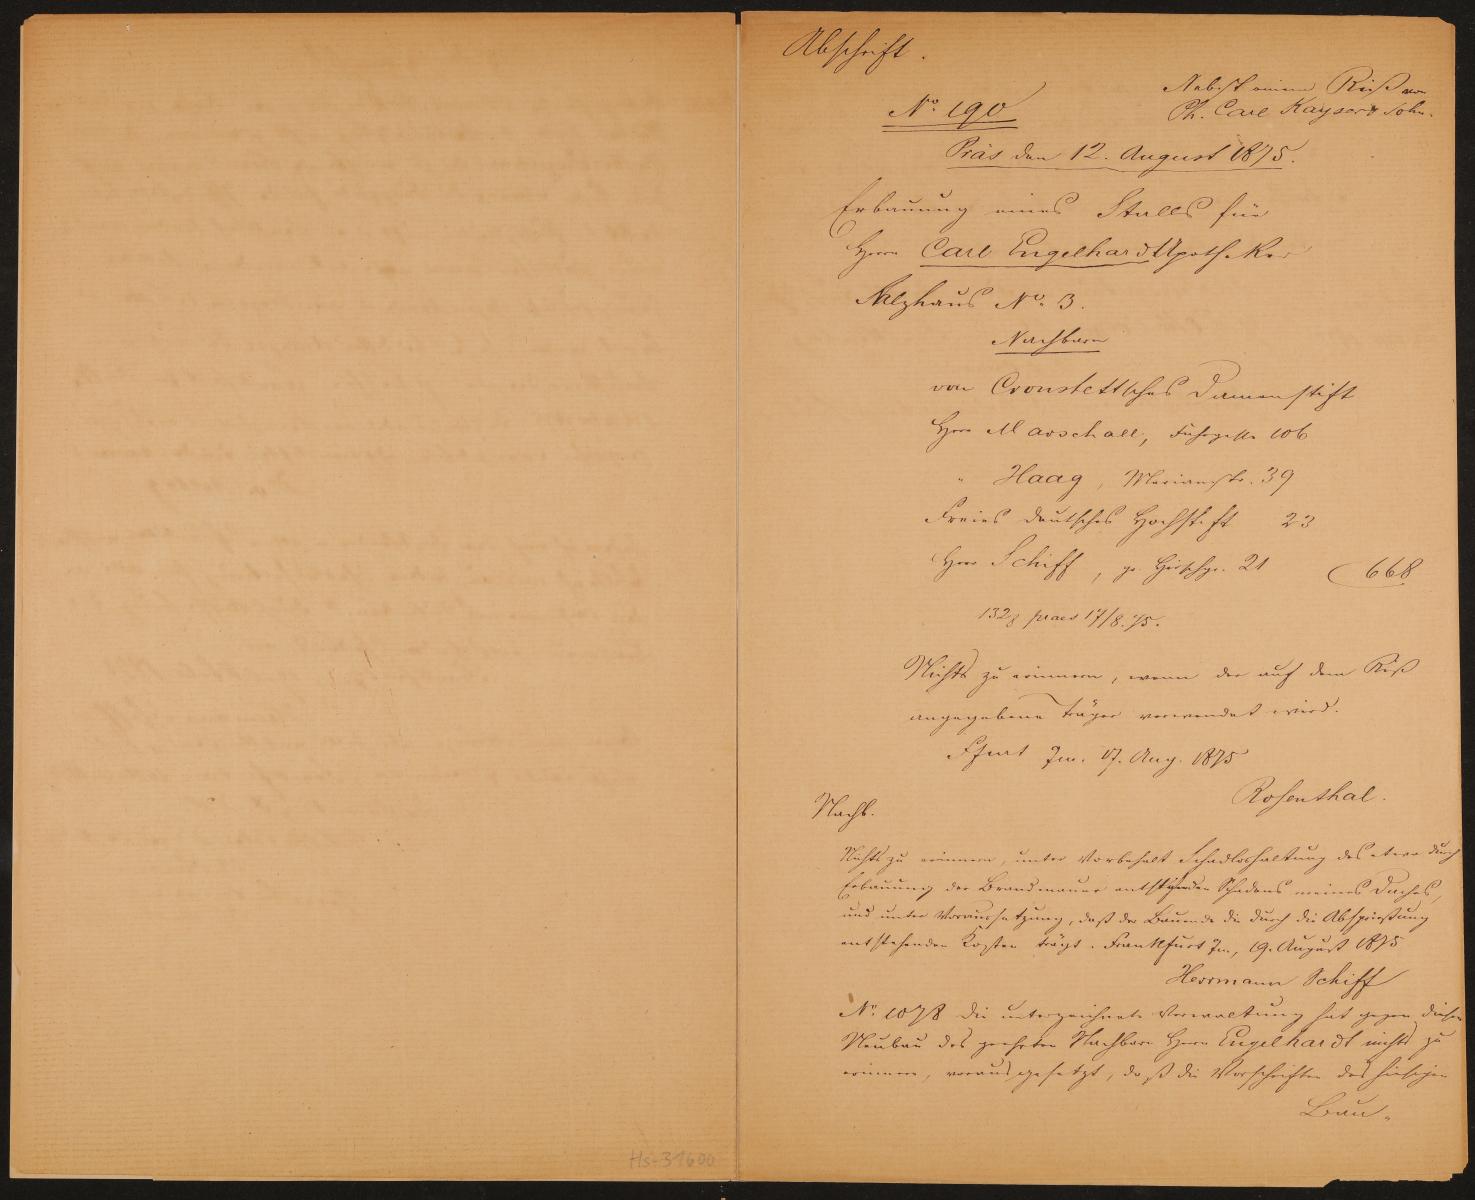 Abschrift.
Nebst einem Riß von
Ph. Carl Kayser & Sohn.
No. 190
Präs den 12. August 1875.
Erbauung eines Stalls für
Herrn Carl Engelhardt Apotheker
Salzhaus No. 3.
Nachbarn
von Cronstettsches Damenstift
Herr Marschall, Fahrgasse 106
" Haag, Marianstr. 39
Freies deutsches Hochstift 23
Herr Schiff, gr. Hirschgr. 21 668
praes 17/8.75.
Nichts zu erinnern, wenn der auf dem Riß
angegebene Träger verwendet wird.
Ffurt 17. Aug. 1875
Rosenthal.
Nachb.
Nichts zu erinnern, unter Vorbehalt Schadloshaltung des etwa durch
Erbauung der Brandmauer entstehenden Schadens meines Daches,
und unter Voraussetzung, daß der Bauende die durch die Abspriessung
entstehenden Kosten trägt. Frankfurt 19. August 1875
Herrmann Schiff
No. 1078 Die unterzeichnete Verwaltung hat gegen diesen
Neubau des geehrten Nachbarn Herrn Engelhardt nichts zu
erinnern, vorausgesetzt, daß die Vorschriften des hiesigen
Bau-
Hs-31600